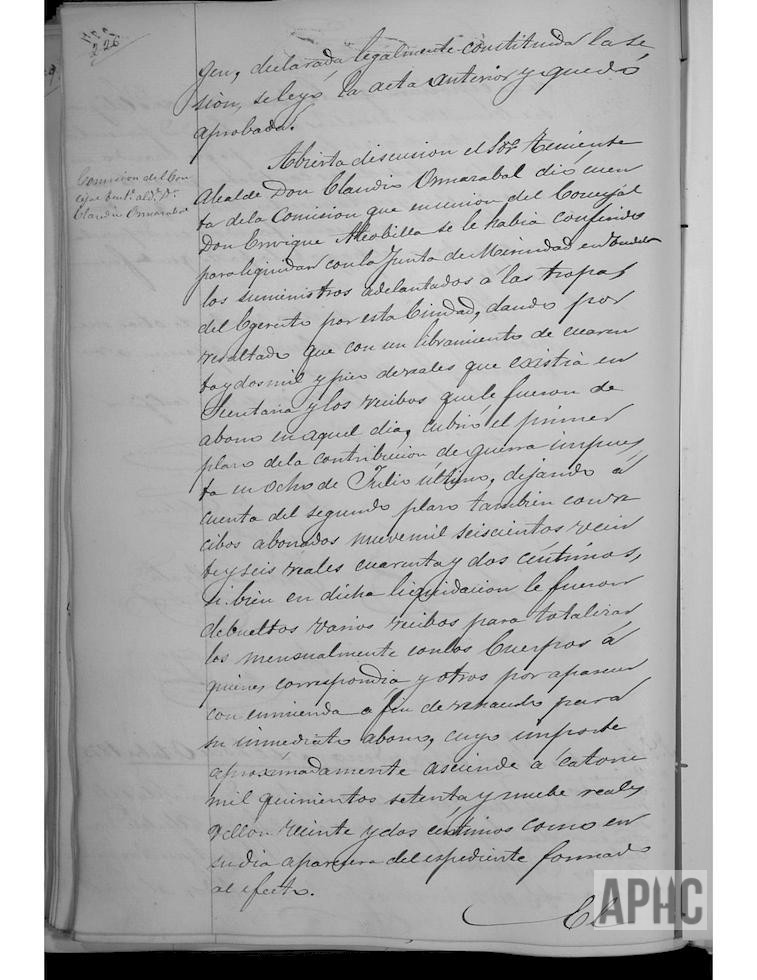 226
gen, declarada legalmente constituida la se
sion, se leyó la acta anterior y quedó
aprobada.
Comision del Con
cejal tente. alde. Dn.
Claudio Ormarabal
Abierta discusion el Sor. Teniente
Alcalde Don Claudio Ormarabal dió cuen
ta de la Comision que en union del Concejal
Don Enrique se le habia conferido
para liquidar con la Junta de Merindad en Tudela
los suministros adelantados á las tropas
del Egercito por esta Ciudad, dando por
resultado que con un libramiento de cuaren
ta y dos mil y pico de reales que existia en
Secretaria y los recibos que le fueron de
abono en aquel dia, cubrió el primer
plazo de la contribucion de guerra impues
ta en ocho de Julio último, dejando á
cuenta del segundo plazo tambien con re
cibos abonados nueve mil seiscientos vein
te y seis reales cuarenta y dos centimos,
si bien en dicha liquidacion le fueron
debueltos varios recibos para totalizar
los mensualmente con los Cuerpos á
quienes correspondia y otros por aparecer
con enmienda a fin de rehacerlo para
su inmediato abono, cuyo importe
aproximadamente asciende á catorce
mil quinientos setenta y nuebe reales
vellon veinte y dos centimos como en
su dia aparecera del espediente formado
al efecto.
El
APHC